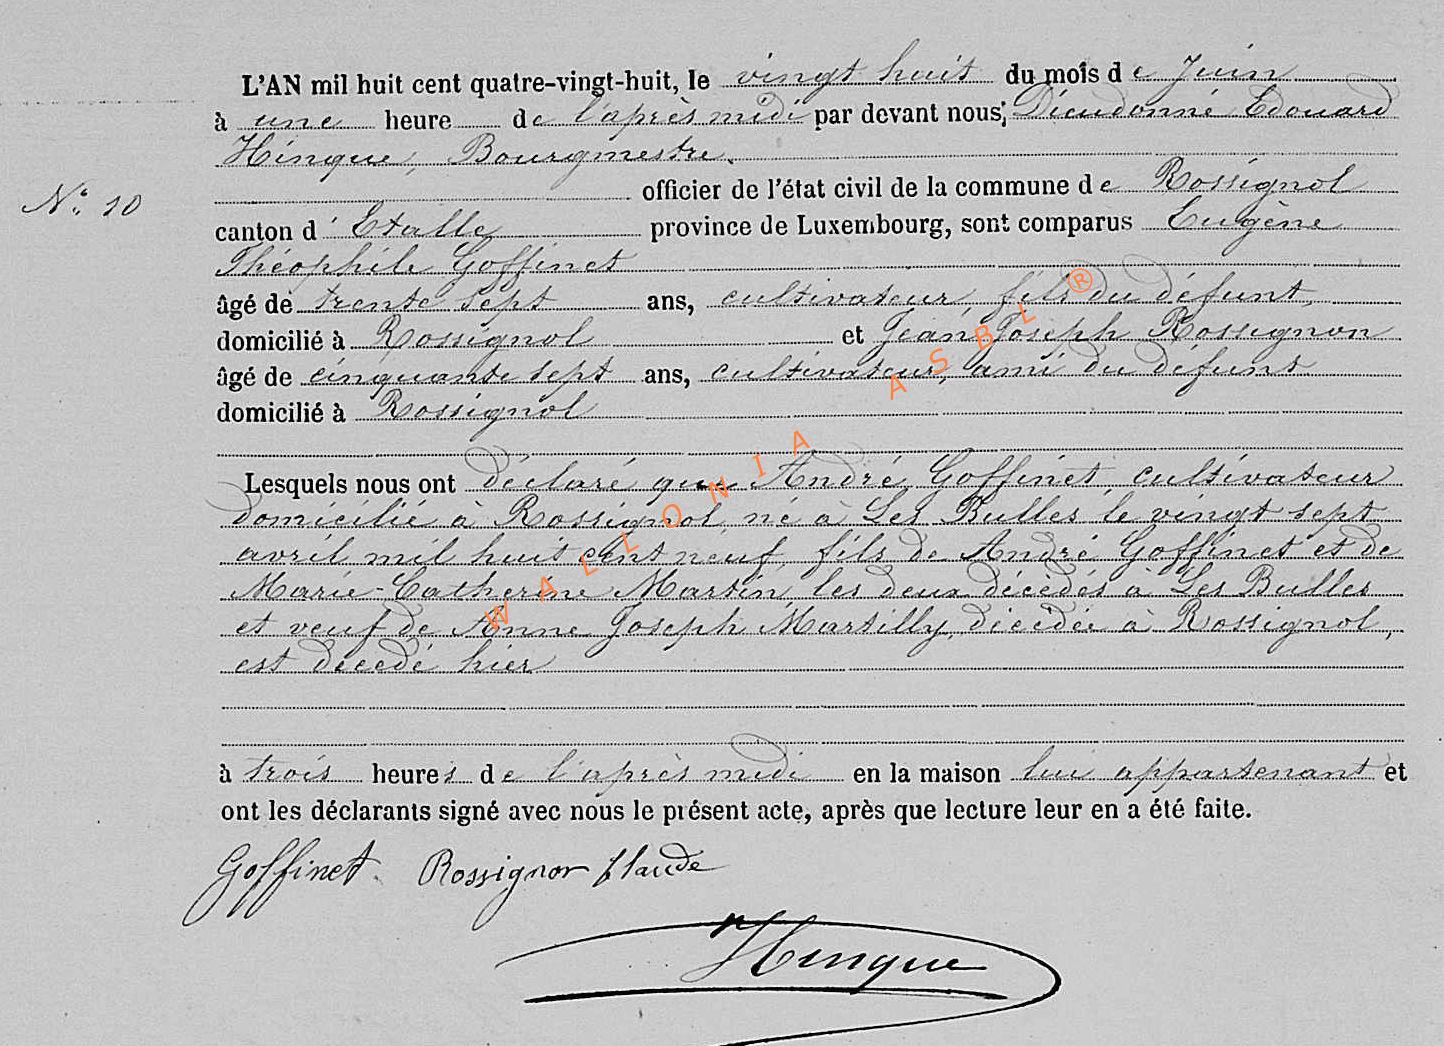 L'AN mil huit cent quatre-vingt-huit, le vingt huit du mois de Juin
à une heure de l'après midi par devant nous; Dieudonné Edouard
Hinque, Bourgmestre.
officier de l'état civil de la commune de Rossignol
N° 10
canton d'Etalle province de Luxembourg, sont comparus Eugène
Théophile Goffinet
âgé de trente sept ans, cultivateur fils du défunt,
domicilié à Rossignol et Jean Joseph Rossignon
âgé de cinquante sept ans, cultivateur, ami du défunt
domicilié à Rossignol
Lesquels nous ont déclaré que André Goffinet cultivateur
domicilié à Rossignol, né à Les Bulles le vingt sept
avril mil huit cent neuf, fils de André Goffinet et de
Marie-Catherine Martin, les deux décédés à Les Bulles
et veuf de Anne Joseph Marsilly, décédée à Rossignol,
est décédé hier
à trois heures de l'après midi en la maison lui appartenant et
ont les déclarants signé avec nous le présent acte, après que lecture leur en a été faite.
Goffinet Rossignon
Hinque
WALLONIA ASBL ®